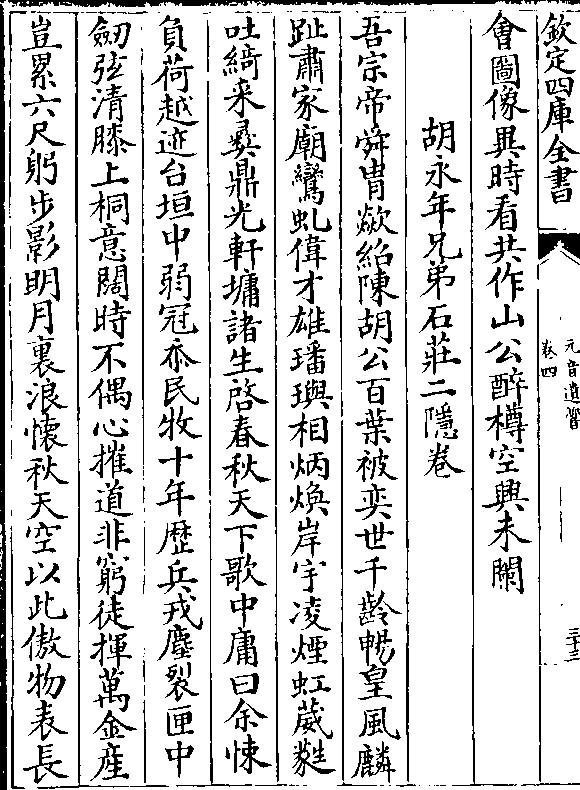 欽定四庫全書
元音遺響
卷四
三十三
會圖像異時看共作山公醉樽空興未闌
胡永年兄弟石莊二隱卷
吾宗帝舜胄歘紹陳胡公百葉被奕世千齡暢皇風麟
趾肅家廟鸞虬偉才雄璠璵相炳煥岸宇凌煙虹葳蕤
吐綺采彛鼎光軒墉諸生啓春秋天下歌中庸曰余悚
負荷越迹台垣中弱冠忝民牧十年歴兵戎塵裂匣中
劒弦清膝上桐意闊時不偶心摧道非窮徒揮萬金産
豈累六尺躬步影明月裏浪懷秋天空以此傲物表長